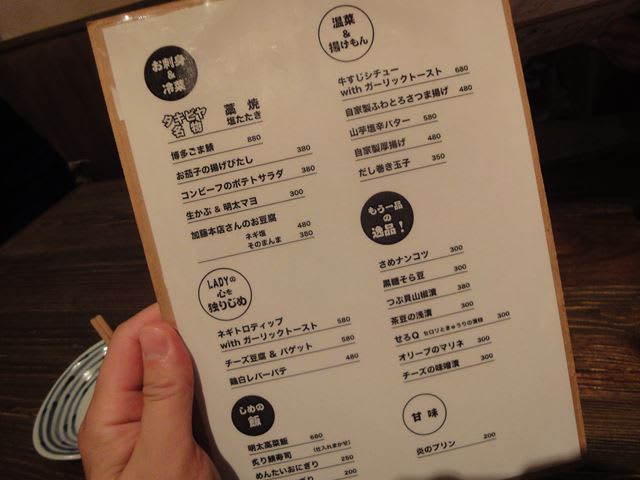 お刺身
&
冷菜
タキビヤ
名物
藁焼
塩たたき
博多ごま鯖 880
お茄子の揚げびたし 380
コンビーフのポテトサラダ 380
生かぶ & 明太マヨ 300
加藤本店さんのお豆腐
ネギ塩 480
そのまんま 380
LADYの
心を
独りじめ
ネギトロディップ
with ガーリックトースト 580
チーズ豆腐 & バゲット 580
鶏白レバーパテ 480
しめの
飯
明太高菜飯 680
炙り鯖寿司 (仕入れまかせ)
めんたいおにぎり 250
200
温菜
&
揚げもん
牛すじシチュー
with ガーリックトースト 680
自家製ふわとろさつま揚げ 480
山芋塩辛バター 580
自家製厚揚げ 480
だし巻き玉子 350
もう一品
の
逸品!
さめナンコツ 300
黒糖そら豆 300
つぶ貝山椒漬 380
茶豆の浅漬 300
せろQ セロリときゅうりの漬物 300
オリーブのマリネ 300
チーズの味噌漬 300
甘味
炎のプリン 200